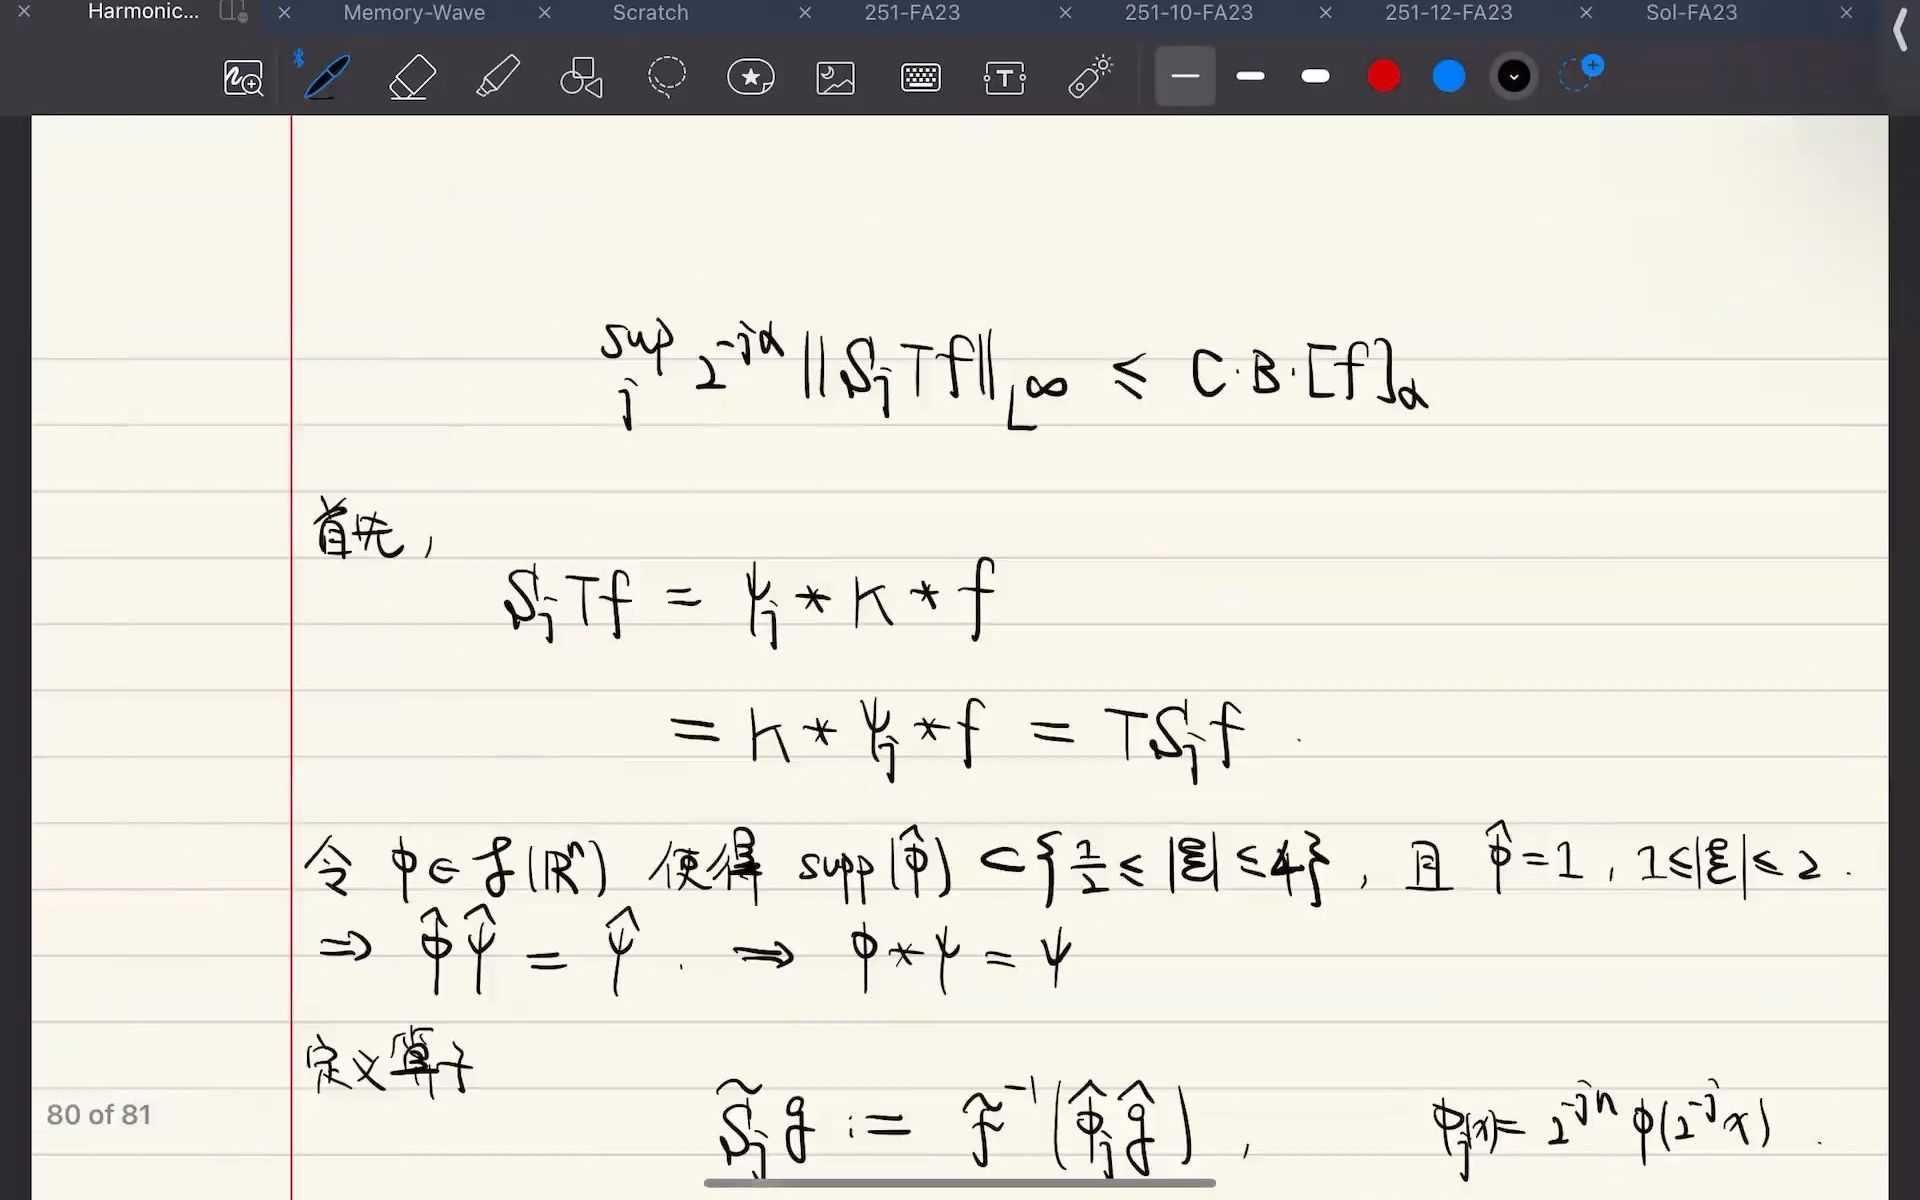 Harmonic... Memory-Wave Scratch 251-FA23 251-10-FA23 251-12-FA23 Sol-FA23
sup_j 2^{-jα} ||S_j Tf||_{L^∞} ≤ C·B·[f]_α
首先,
S_j Tf = ψ_j * K * f
= K * ψ_j * f = T S_j f .
令 φ ∈ 𝒮(ℝ^n) 使得 supp(φ̂) ⊂ {1/2 ≤ |ξ| ≤ 4}, 且 φ̂ = 1, 1 ≤ |ξ| ≤ 2 .
⇒ φ̂ ψ̂ = ψ̂ . ⇒ φ * ψ = ψ
定义算子
S̃_j g := ℱ^{-1}(φ̂_j ĝ), φ_j(x) = 2^{-jn} φ(2^{-j}x) .
80 of 81